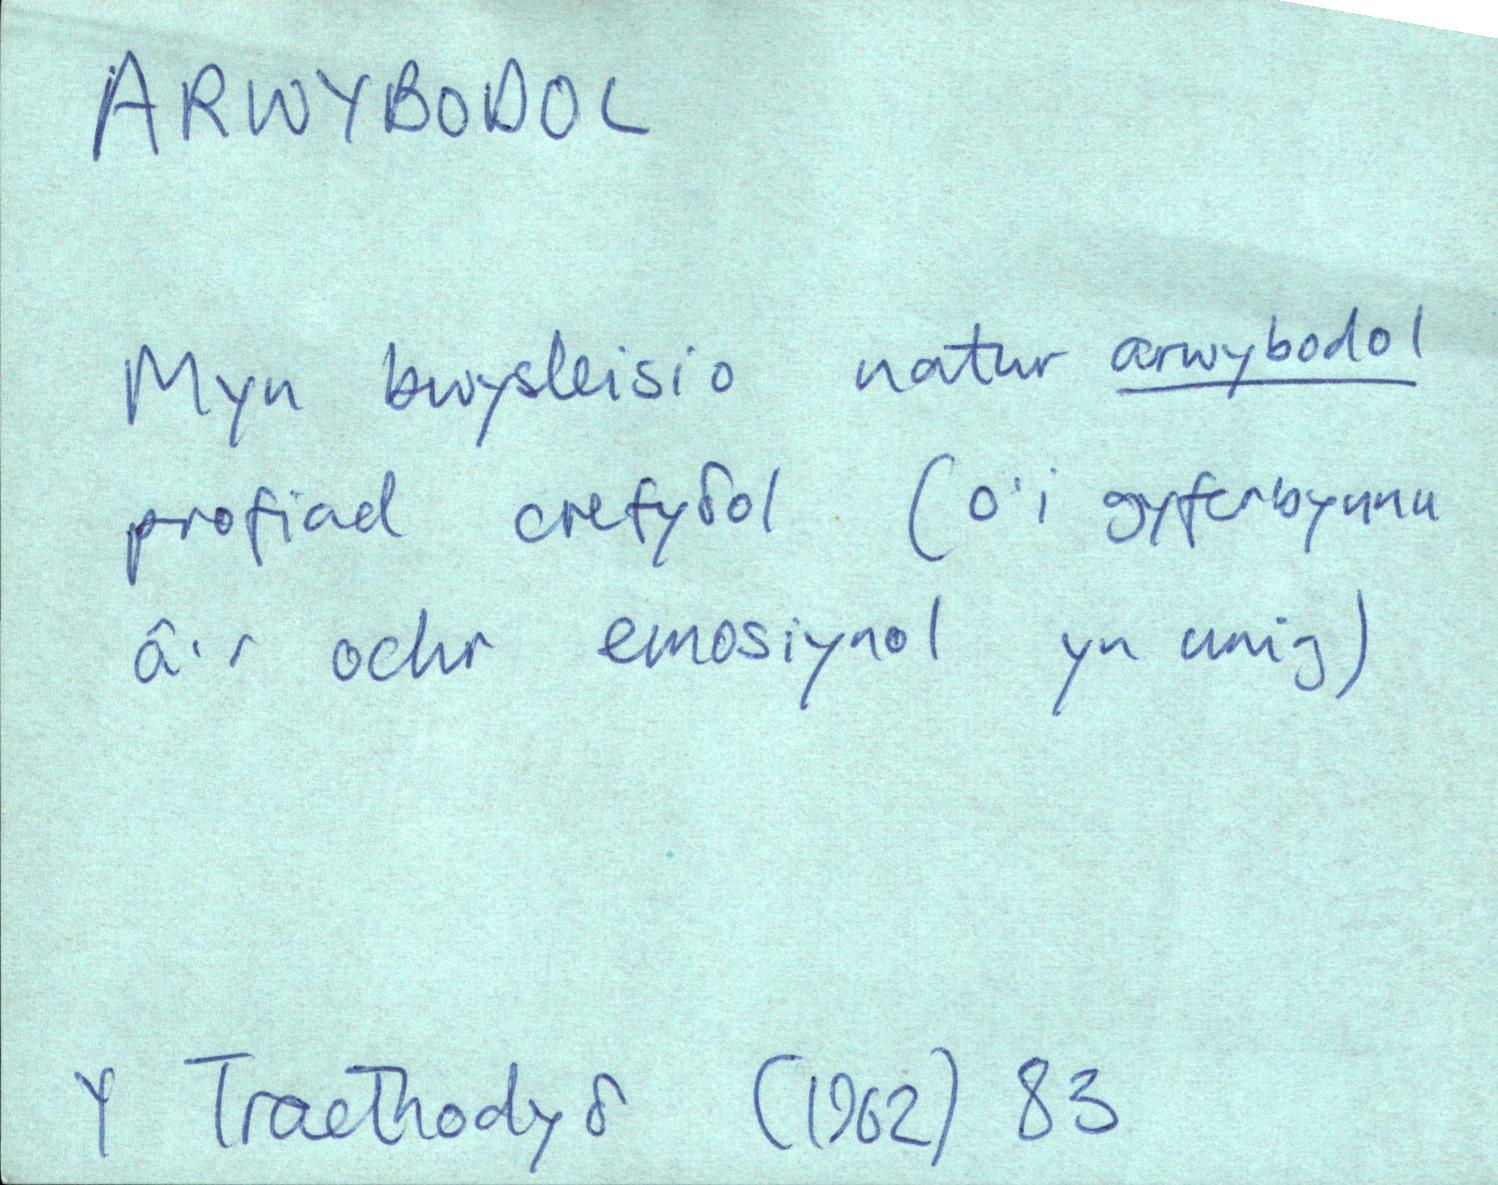 ARWYBODOL
Myn bwysleisio natur arwybodol
profiad crefyδol (o'i gyferbynnu
â'r ochr emosiynol yn unig)
Y Traethodyδ (1962) 83